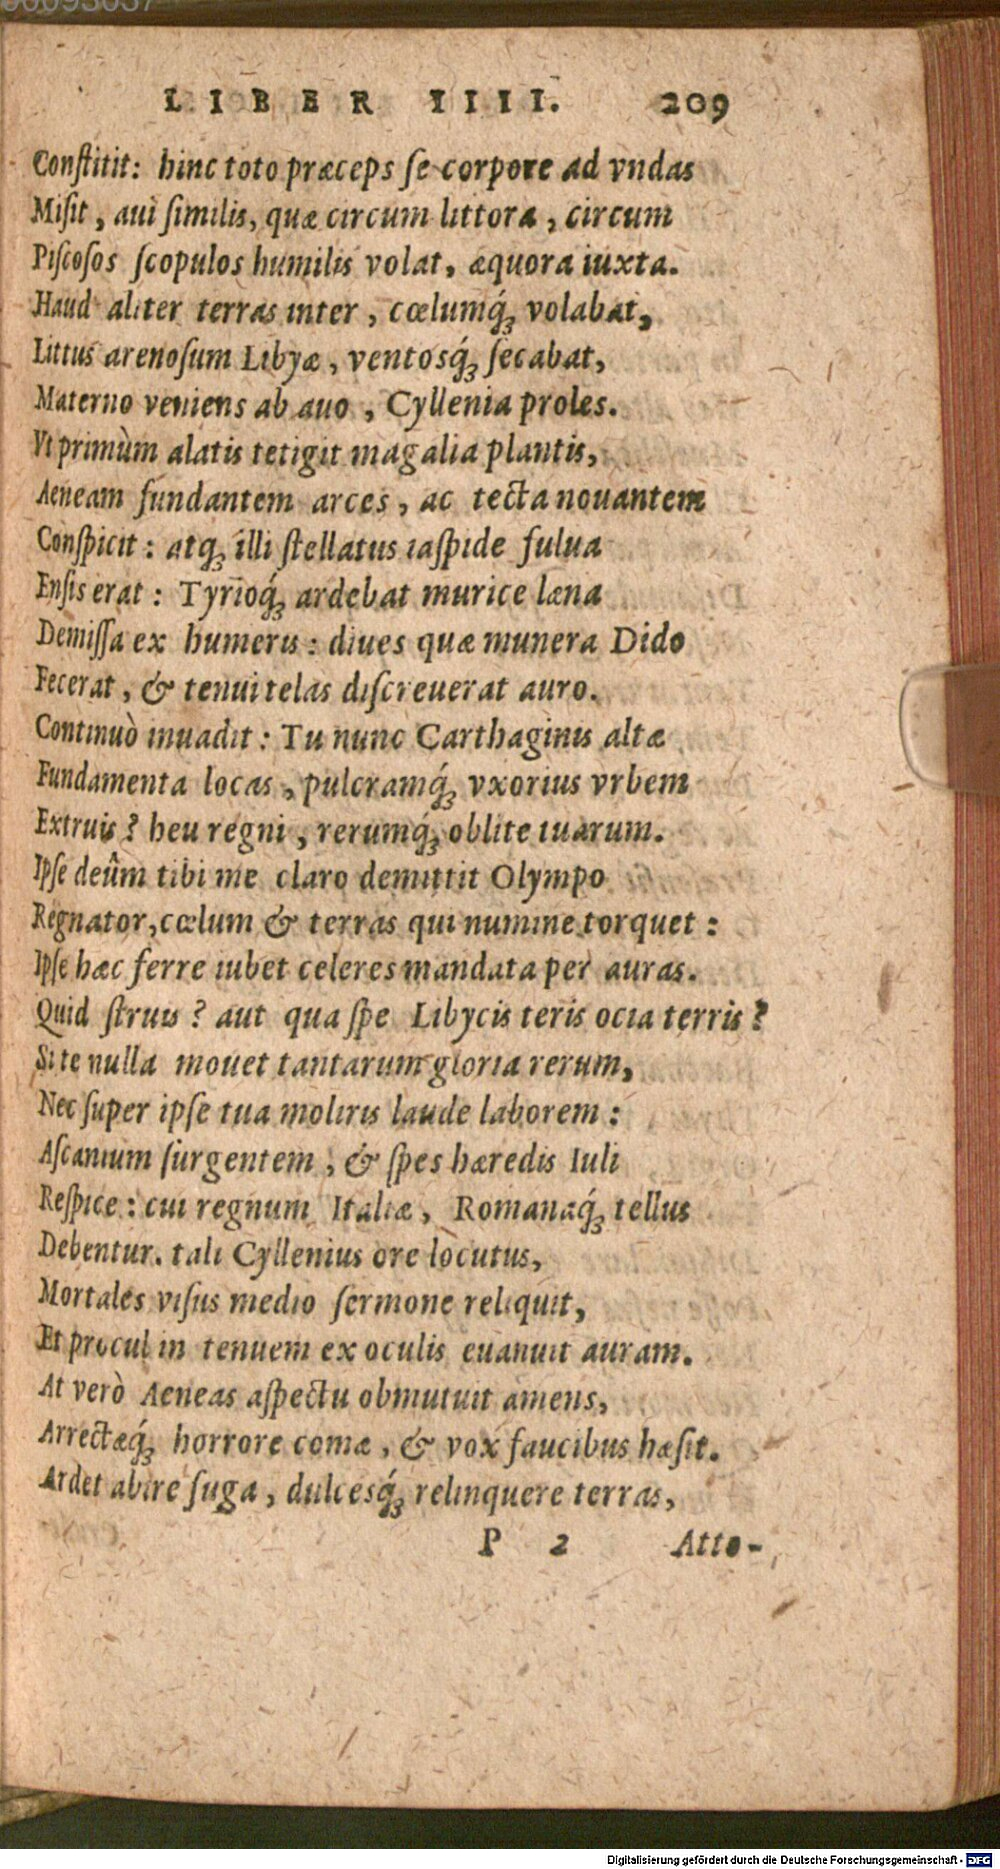 LIBER IIII. 209
Conſtitit: hinc toto præceps ſe corpore ad vndas
Miſit, aui ſimilis, quæ circum littora, circum
Piſcoſos ſcopulos humilis volat, æquora iuxta.
Haud aliter terras inter, cœlumq́ꝫ volabat,
Littus arenoſum Libyæ, ventosq́ꝫ ſecabat,
Materno veniens ab auo, Cyllenia proles.
Vt primùm alatis tetigit magalia plantis,
Aeneam fundantem arces, ac tecta nouantem
Conſpicit: atqꝫ illi ſtellatus iaſpide fulua
Enſis erat: Tyrioq́ꝫ ardebat murice læna
Demiſſa ex humeris: diues quæ munera Dido
Fecerat, & tenui telas diſcreuerat auro.
Continuò inuadit: Tu nunc Carthaginis altæ
Fundamenta locas, pulcramq́ꝫ vxorius vrbem
Extruis? heu regni, rerumq́ꝫ oblite tuarum.
Ipſe deûm tibi me claro demittit Olympo
Regnator, cœlum & terras qui numine torquet:
Ipſe hæc ferre iubet celeres mandata per auras.
Quid ſtruis? aut qua ſpe Libycis teris ocia terris?
Si te nulla mouet tantarum gloria rerum,
Nec ſuper ipſe tua moliris laude laborem:
Aſcanium ſurgentem, & ſpes hæredis Iuli
Reſpice: cui regnum Italiæ, Romanaq́ꝫ tellus
Debentur. tali Cyllenius ore locutus,
Mortales viſus medio ſermone reliquit,
Et procul in tenuem ex oculis euanuit auram.
At verò Aeneas aſpectu obmutuit amens,
Arrectæq́ꝫ horrore comæ, & vox faucibus hæſit.
Ardet abire fuga, dulcesq́ꝫ relinquere terras,
P 2 Atto-
Digitalisierung gefördert durch die Deutsche Forschungsgemeinschaft - DFG